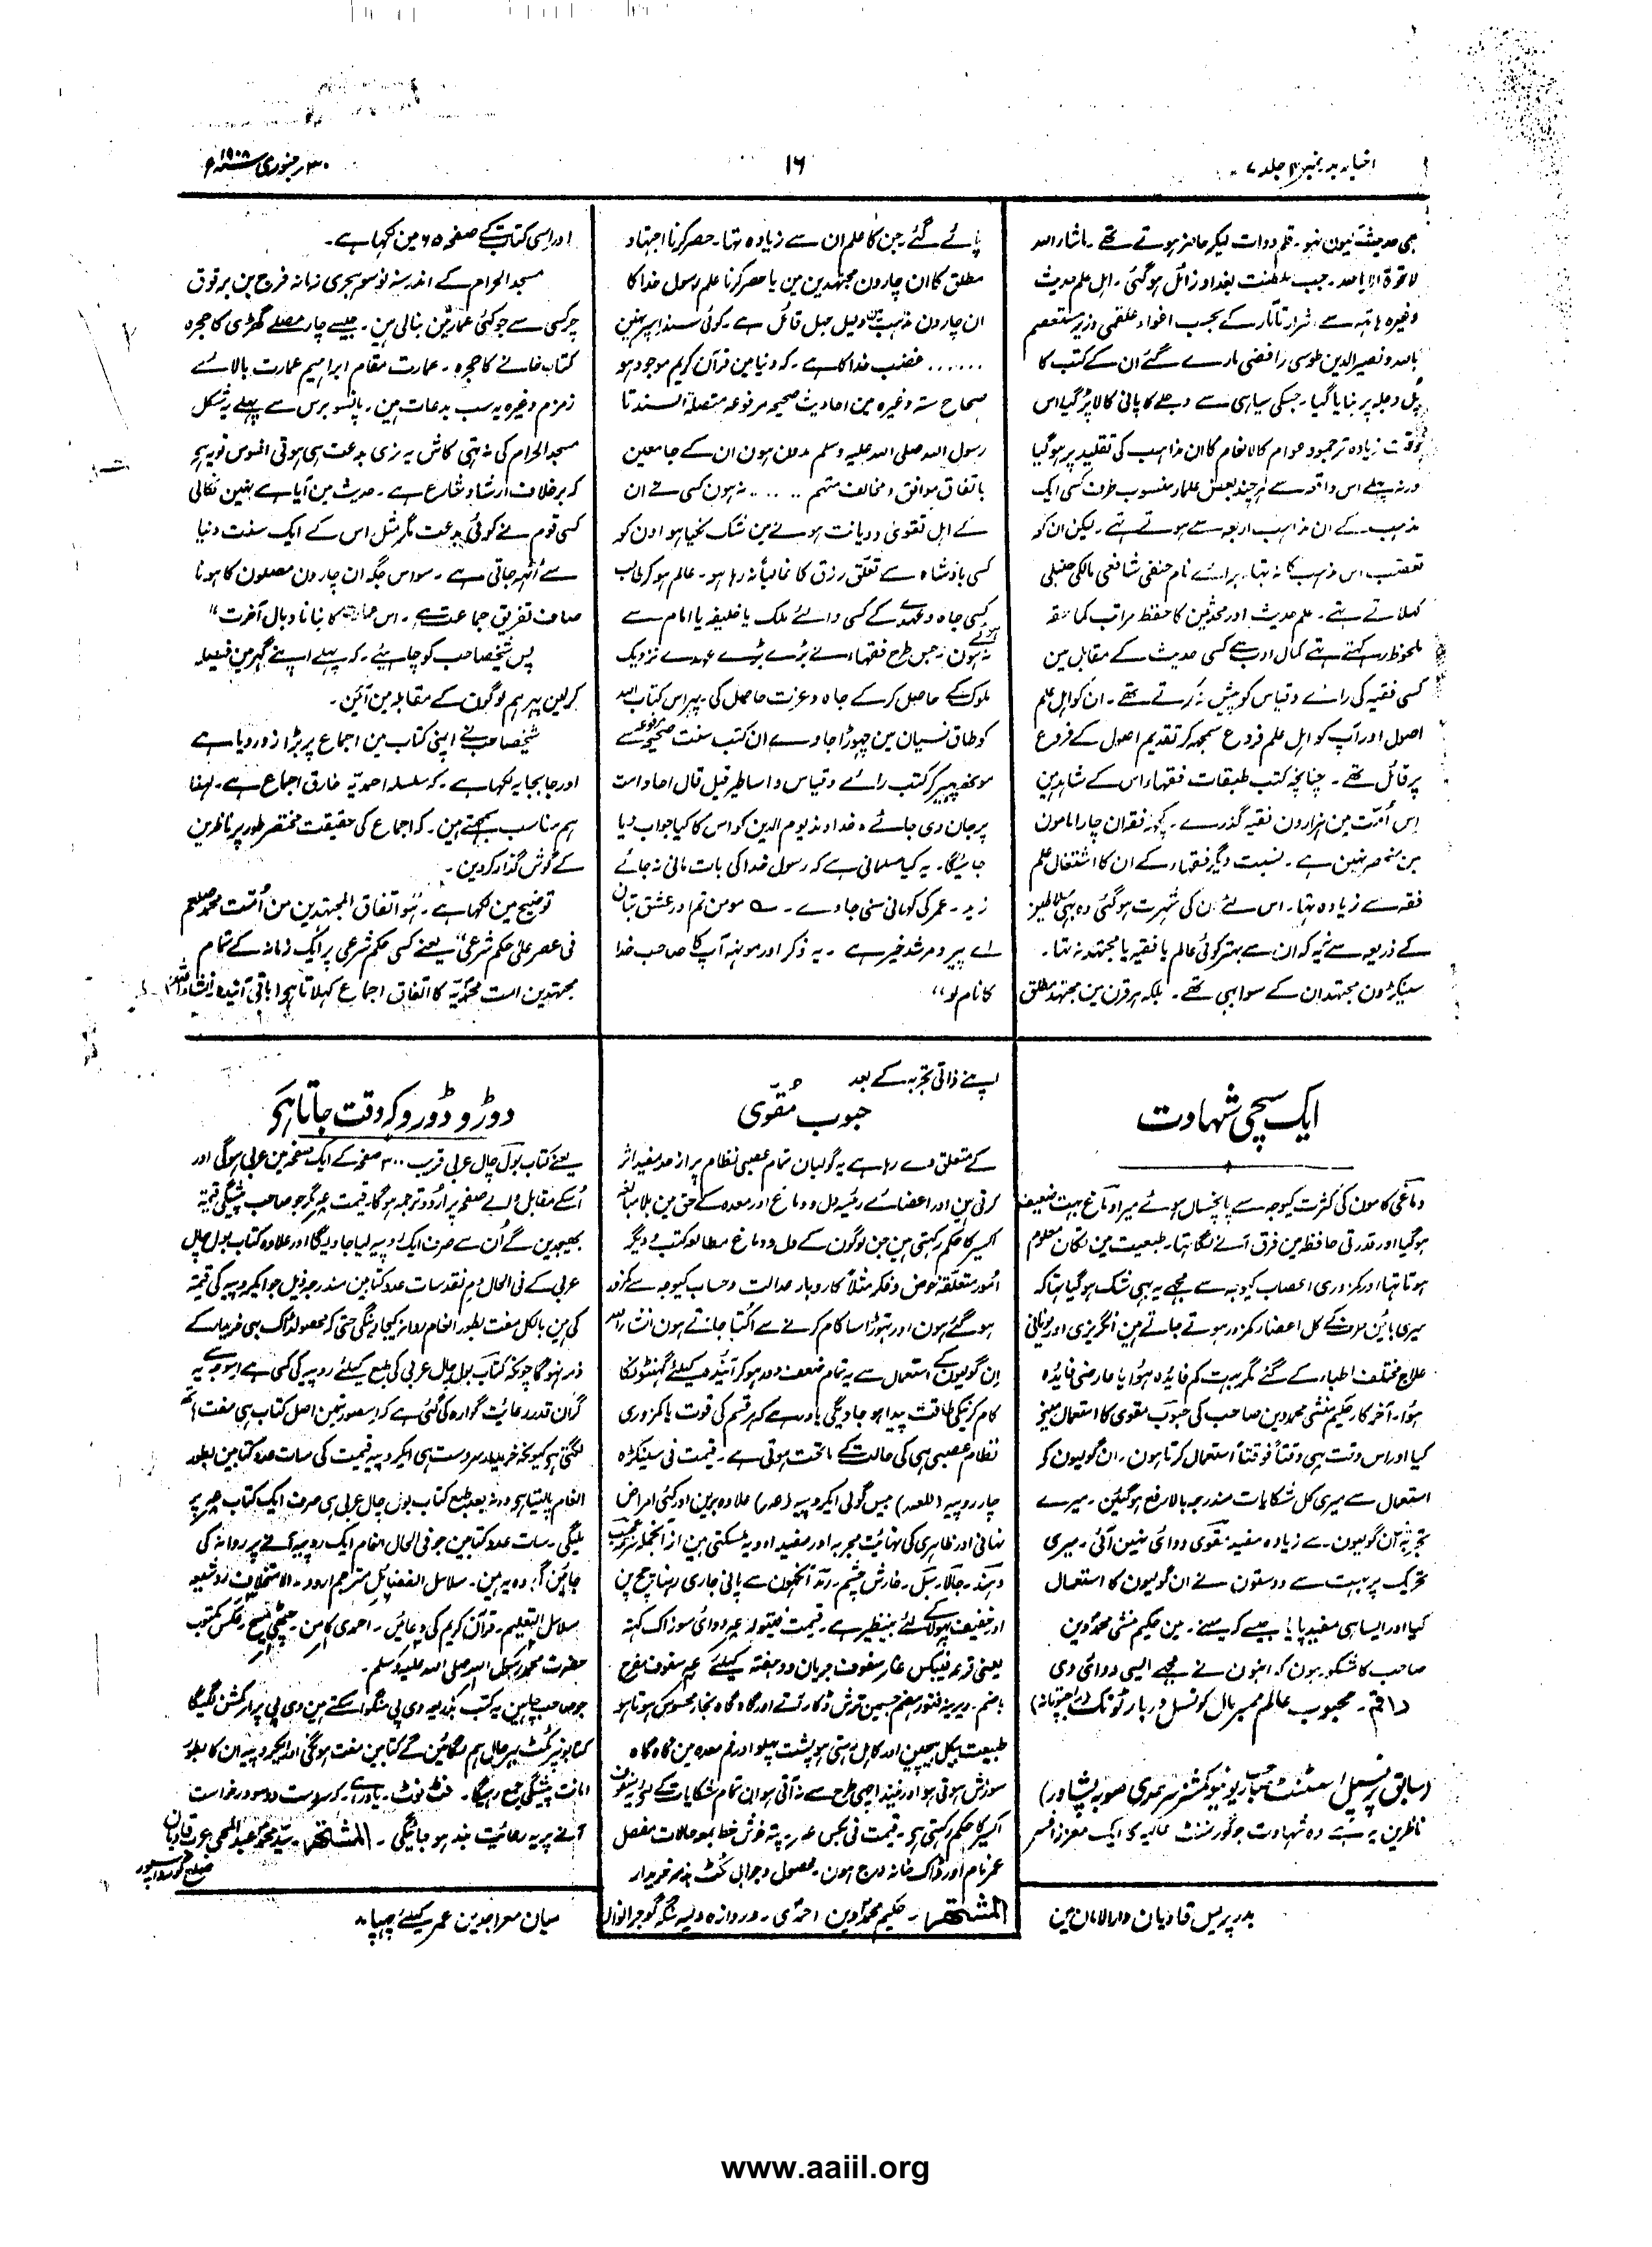 اخبار بدر نمبر ۴ جلد ۷
۱۶
۳۰؍ جنوری ۱۹۰۸ء
ہی حدیث کیون نہو۔ قلم دوات لیکر حاضر ہوتے تھے۔ ماشاء اللہ
لا قوۃ الا باللہ۔ جب سلطنت بغداد زائل ہوگئی۔ اہل علم حدیث
وغیرہ ہاتہہ سے اشرار تاتار کے بحسب اغواء علقمی وزیر مستعصم
باللہ و نصیر الدین طوسی رافضی مارے گئے ان کے کتب کا
پُل دجلہ پر بنایا گیا۔ جسکی سیاہی سے دجلے کا پانی کالا پڑ گیا اس
وقت زیادہ تر جمود عوام کالانعام کا ان مذاہب کی تقلید پر ہوگیا
ورنہ پہلے اس واقعہ سے ہر چند بعض علماء منسوب طرف کسی ایک
مذہب کے ان مذاہب اربعہ سے ہوتے تہے۔ لیکن ان کو
تعصب اس مذہب کا نہ تہا۔ برائے نام حنفی شافعی مالکی حنبلی
کہلاتے تہے۔ علم حدیث اور محدثین کا حفظ مراتب کما حقہ
ملحوظ رکہتے تہے کمال ادب سے کسی حدیث کے مقابل مین
کسی فقیہ کی رائے و قیاس کو پیش نہ کرتے تھے۔ ان کو اہل علم
اصول اور آپ کو اہل علم فروع سمجہہ کر تقدیم اصول کے فروع
پر قائل تھے۔ چنانچہ کتب طبقات فقہاء اس کے شاہد ہین
اس اُمت مین ہزارون فقیہ گذرے۔ کچہہ فقہ ان چار امامون
مین منحصر نہین ہے۔ نسبت دیگر فقہاء کے ان کا اشتغال علم
فقہ سے زیادہ تہا۔ اس لئے ان کی شہرت ہوگئی وہ بہی سلاطین
کے ذریعہ سے نہ یہ کہ ان سے بہتر کوئی عالم یا فقیہ یا مجتہد نہ تہا۔
سینکڑون مجتہد ان کے سوا بہی تھے۔ بلکہ ہر قرن مین مجتہد مطلق
پائے گئے۔ جن کا علم ان سے زیادہ تہا۔ حصر کرنا اجتہاد
مطلق کا ان چارون مجتہدین مین یا حصر کرنا علم رسول خدا کا
ان چارون مذہب مین دلیل جہل قائل ہے۔ کوئی سند اسپر نہین
...... غضب خدا کا ہے۔ کہ دنیا مین قرآن کریم موجود ہو
صحاح ستہ وغیرہ مین احادیث صحیحہ مرفوعہ متصلۃ السند تا
رسول اللہ صلی اللہ علیہ وسلم مدون ہون ان کے جامعین
باتفاق موافق و مخالف متہم ..... نہ ہون کسی نے ان
کے اہل تقویٰ و دیانت ہونے مین شک نکیا ہو اون کو
کسی بادشاہ سے تعلق رزق کا غالباً نہ رہا ہو۔ عالم ہو کر طالب
کسی جاہ و عہدے کے کسی والئے ملک یا خلیفہ یا امام سے
نہ ہوئے ہون۔ جس طرح فقہاء نے بڑے بڑے عہدے نزدیک
ملوک کے حاصل کرکے جاہ و عزت حاصل کی۔ پہر اس کتاب اللہ
کو طاق نسیان مین چہوڑا جاوے ان کتب سنت صحیحہ مرفوعہ سے
مونہہ پہیر کر کتب رائے و قیاس و اساطیر قیل قال احاد امت
پر جان دی جائے۔ خداوند یوم الدین کو اس کا کیا جواب دیا
جائیگا۔ یہ کیا مسلمانی ہے کہ رسول خدا کی بات مانی نہ جائے
زید۔ عمر کی کہانی سنی جاوے۔ ؎ مومن تم اور عشق بتان
اے پیر و مرشد خیر ہے۔ یہ ذکر اور مونہہ آپ کا صاحب خدا
کا نام لو“
اور اسی کتاب کے صفحہ ۶۵ مین لکہا ہے۔
مسجد الحرام کے اندر سنہ نو سو ہجری زمانہ فرج بن برقوق
چرکسی سے جو کئی عمارتین بنالی ہین۔ جیسے چار مصلے گھڑی کا حجرہ
کتاب خانے کا حجرہ۔ عمارت مقام ابراہیم عمارت بالائے
زمزم وغیرہ یہ سب بدعات ہین۔ پانسو برس سے پہلے یہ شکل
مسجد الحرام کی نہ تہی کاش یہ نری بدعت ہی ہوتی افسوس تو یہ ہے
کہ بر خلاف ارشاد شارع ہے۔ حدیث مین آیا ہے نہین نکالی
کسی قوم نے کوئی بدعت مگر مثل اس کے ایک سنت دنیا
سے اُٹہہ جاتی ہے۔ سو اس جگہ ان چارون مصلون کا ہونا
صاف تفریق جماعت ہے۔ اس کا بنانا وبال آخرت“
پس شیخصاحب کو چاہیئے۔ کہ پہلے اپنے گہر مین فیصلہ
کرلین پہر ہم لوگون کے مقابلہ مین آئین۔
شیخصاحب نے اپنی کتاب مین اجماع پر بڑا زور دیا ہے
اور جا بجا یہ لکہا ہے۔ کہ سلسلہ احمدیہ خارق اجماع ہے۔ لہذا
ہم مناسب سمجہتے ہین۔ کہ اجماع کی حقیقت مختصر طور پر ناظرین
کے گوش گذار کردین۔
توضیح مین لکہا ہے۔ ہو اتفاق المجتہدین من اُمت محمد صلعم
فی عصر علیٰ حکم شرعی“ یعنے کسی حکم شرعی پر ایک زمانہ کے تمام
مجتہدین امت محمدیہ کا اتفاق اجماع کہلاتا ہے (باقی آئیندہ انشاء اللہ)
ایک سچی شہادت
دماغی کامون کی کثرت کیوجہ سے پانچسال ہوئے میرا دماغ بہت ضعیف
ہوگیا اور قدرتی حافظہ مین فرق آنے لگا تہا۔ طبیعت مین تکان معلوم
ہوتا تہا اور کمزوری اعصاب کیوجہ سے مجہے یہ بہی شک ہوگیا تہا کہ
میری بائین طرف کے کل اعضاء کمزور ہوتے جاتے ہین انگریزی اور یونانی
علاج مختلف اطباء کے کئے گئے مگر بہت کم فائدہ ہوا یا عارضی فائدہ
ہوا۔ آخر کار حکیم منشی محمد دین صاحب کی حبوب مقوی کا استعمال مینے
کیا اور اس وقت بہی وقتاً فوقتاً استعمال کرتا ہون۔ ان گولیون کے
استعمال سے میری کل شکایات مندرجہ بالا رفع ہوگئین۔ میرے
تجربہ مین ان گولیون سے زیادہ مفید مقوی دوائی نہین آئی۔ میری
تحریک پر بہت سے دوستون نے ان گولیون کا استعمال
کیا اور ایسا ہی مفید پایا جیسے کہ مینے۔ مین حکیم منشی محمد دین
صاحب کا مشکور ہون کہ انہون نے مجہے ایسی دوائی دی
راقم۔ محبوب عالم ممبر مال کونسل دربار ٹونک (راجپوتانہ)
(سابق پرنسپل اسسٹنٹ صاحب ریونیو کمشنر سرحدی صوبہ پشاور)
ناظرین یہ ہے وہ شہادت جو گورنمنٹ عالیہ کا ایک معزز افسر
اپنے ذاتی تجربہ کے بعد
حبوب مُقوّی
کے متعلق دے رہا ہے یہ گولیان تمام عصبی نظام پر از حد مفید اثر
کرتی ہین اور اعضائے رئیسہ دل و دماغ اور معدہ کے حق مین بلا مبالغہ
اکسیر کا حکم رکہتی ہین جن لوگون کے دل و دماغ مطالعہ کتب و دیگر
اُمور متعلقہ خوض و فکر مثلاً کاروبار عدالت و حساب کیوجہ سے کمزور
ہوگئے ہون اور تہوڑا سا کام کرنے سے اُکتا جاتے ہون انشاء اللہ
ان گولیون کے استعمال سے یہ تمام ضعف دور ہو کر آئیندہ کیلئے گھنٹون تک
کام کرنیکی طاقت پیدا ہو جاویگی یاد رہے کہ ہر قسم کی قوت یا کمزوری
نظام عصبی ہی کی حالت کے ماتحت ہوتی ہے۔ قیمت فی سینکڑہ
چار روپیہ (للعہ) بیس گولی ایکروپیہ (عہ) علاوہ برین اور کئی امراض
نہانی اور ظاہری کی نہائیت مجربہ اور مفید ادویہ ملسکتی ہین از انجملہ سرمہ
دہند۔ جالا۔ سبل۔ خارش چشم۔ رمد آنکھون سے پانی جاری رہنا
اور خفیف پہولا کے لئے بینظیر ہے۔ قیمت فیتولہ عہ دوائی سوزاک کہنہ
یعنی قیمت فیبکس عار سفوف جریان دو ہفتہ کیلئے عہ سفوف مفرح
باضم۔ دیرینہ فتور ہضم جسمین ترش ڈکار آتے اور گاہ گاہ بخار محسوس ہوتا ہو
طبیعت بیکل بیچین اور کاہل رہتی ہو پشت پہلو اور فم معدہ مین گاہ گاہ
سوزش ہوتی ہو اور نیند اچہی طرح سے نہ آتی ہو ان تمام شکایات کے لیے یہ سفوف
اکسیر کا حکم رکہتی ہے۔ قیمت فی بکس عہ۔ پتہ خوش خط بمعہ حالات مفصل
عمر نام اور ڈاک خانہ درج ہون۔ محصول و جوابی ٹکٹ بذمہ خریدار
المشتہر۔ حکیم محمد دین احمدی۔ دروازہ گوجرانوالہ
دوڑو دوڑو کہ وقت جاتا ہے
یعنے کتاب بول چال عربی قریب ۳۰۰ صفحہ کے ایک صفحہ مین عربی ہوگی اور
اُسکے مقابل والے صفحہ پر اُردو ترجمہ ہوگا۔ قیمت عہ مگر جو صاحب پیشگی قیمت
بھیجدین گے اُن سے صرف ایکروپیہ لیا جاویگا اور علاوہ کتاب بول چال
عربی کے فی الحال وہم نقد سات عدد کتابین مندرجہ ذیل جو ایکروپیہ کی قیمت
کی ہین بالکل مفت بطور انعام روانہ کیجاوینگی حتی کہ محصولڈاک بہی خریدار کے
ذمہ نہوگا چونکہ کتاب بول چال عربی کی طبع کیلئے روپیہ کی کمی ہے اسوجہ سے یہ
گران قدر رعائیت گوارہ کی گئی ہے کہ اصل کتاب ہی مفت ہاتھ
لگتی ہے کیونکہ خریدار سردست ہی ایکروپیہ قیمت کی سات عدد کتابین بطور
انعام پالیتا ہے ورنہ بعد طبع کتاب بول چال عربی ہی صرف ایک کتاب عہ پر
ملیگی۔ سات عدد کتابین جو فی الحال انعام ایک روپیہ آنے پر روانہ کی
جائین گی وہ یہ ہین۔ سلاسل الفضائل مترجم اردو۔ الاستخلاف رد شیعہ
سلاسل التعلیم۔ قرآن کریم کی دعائین۔ احمدی کامن۔ چٹھی مسیح۔ عکس مکتوب
حضرت محمد رسول اللہ صلی اللہ علیہ وسلم۔
جو صاحب چاہین یہ کتب بذریعہ وی پی منگوا سکتے ہین وی پی پر ار کمشن لگیگا
کتابونپر ٹکٹ بہرحال ہم لگائین گے کتابین مفت ہونگی اور ایکروپیہ ان کا بطور
امانت پیشگی جمع رہیگا۔ فٹ نوٹ۔ یاد رہے۔ کہ سردست دو سو درخواست
آنے پر یہ رعائیت بند ہو جائیگی۔ المشتہر۔ سید محمد عبد المحی عرب قادیان
ضلع گورداسپور
بدر پریس قادیان دارالامان مین
میان معراجدین عمر کیلئے چہپا
www.aaiil.org